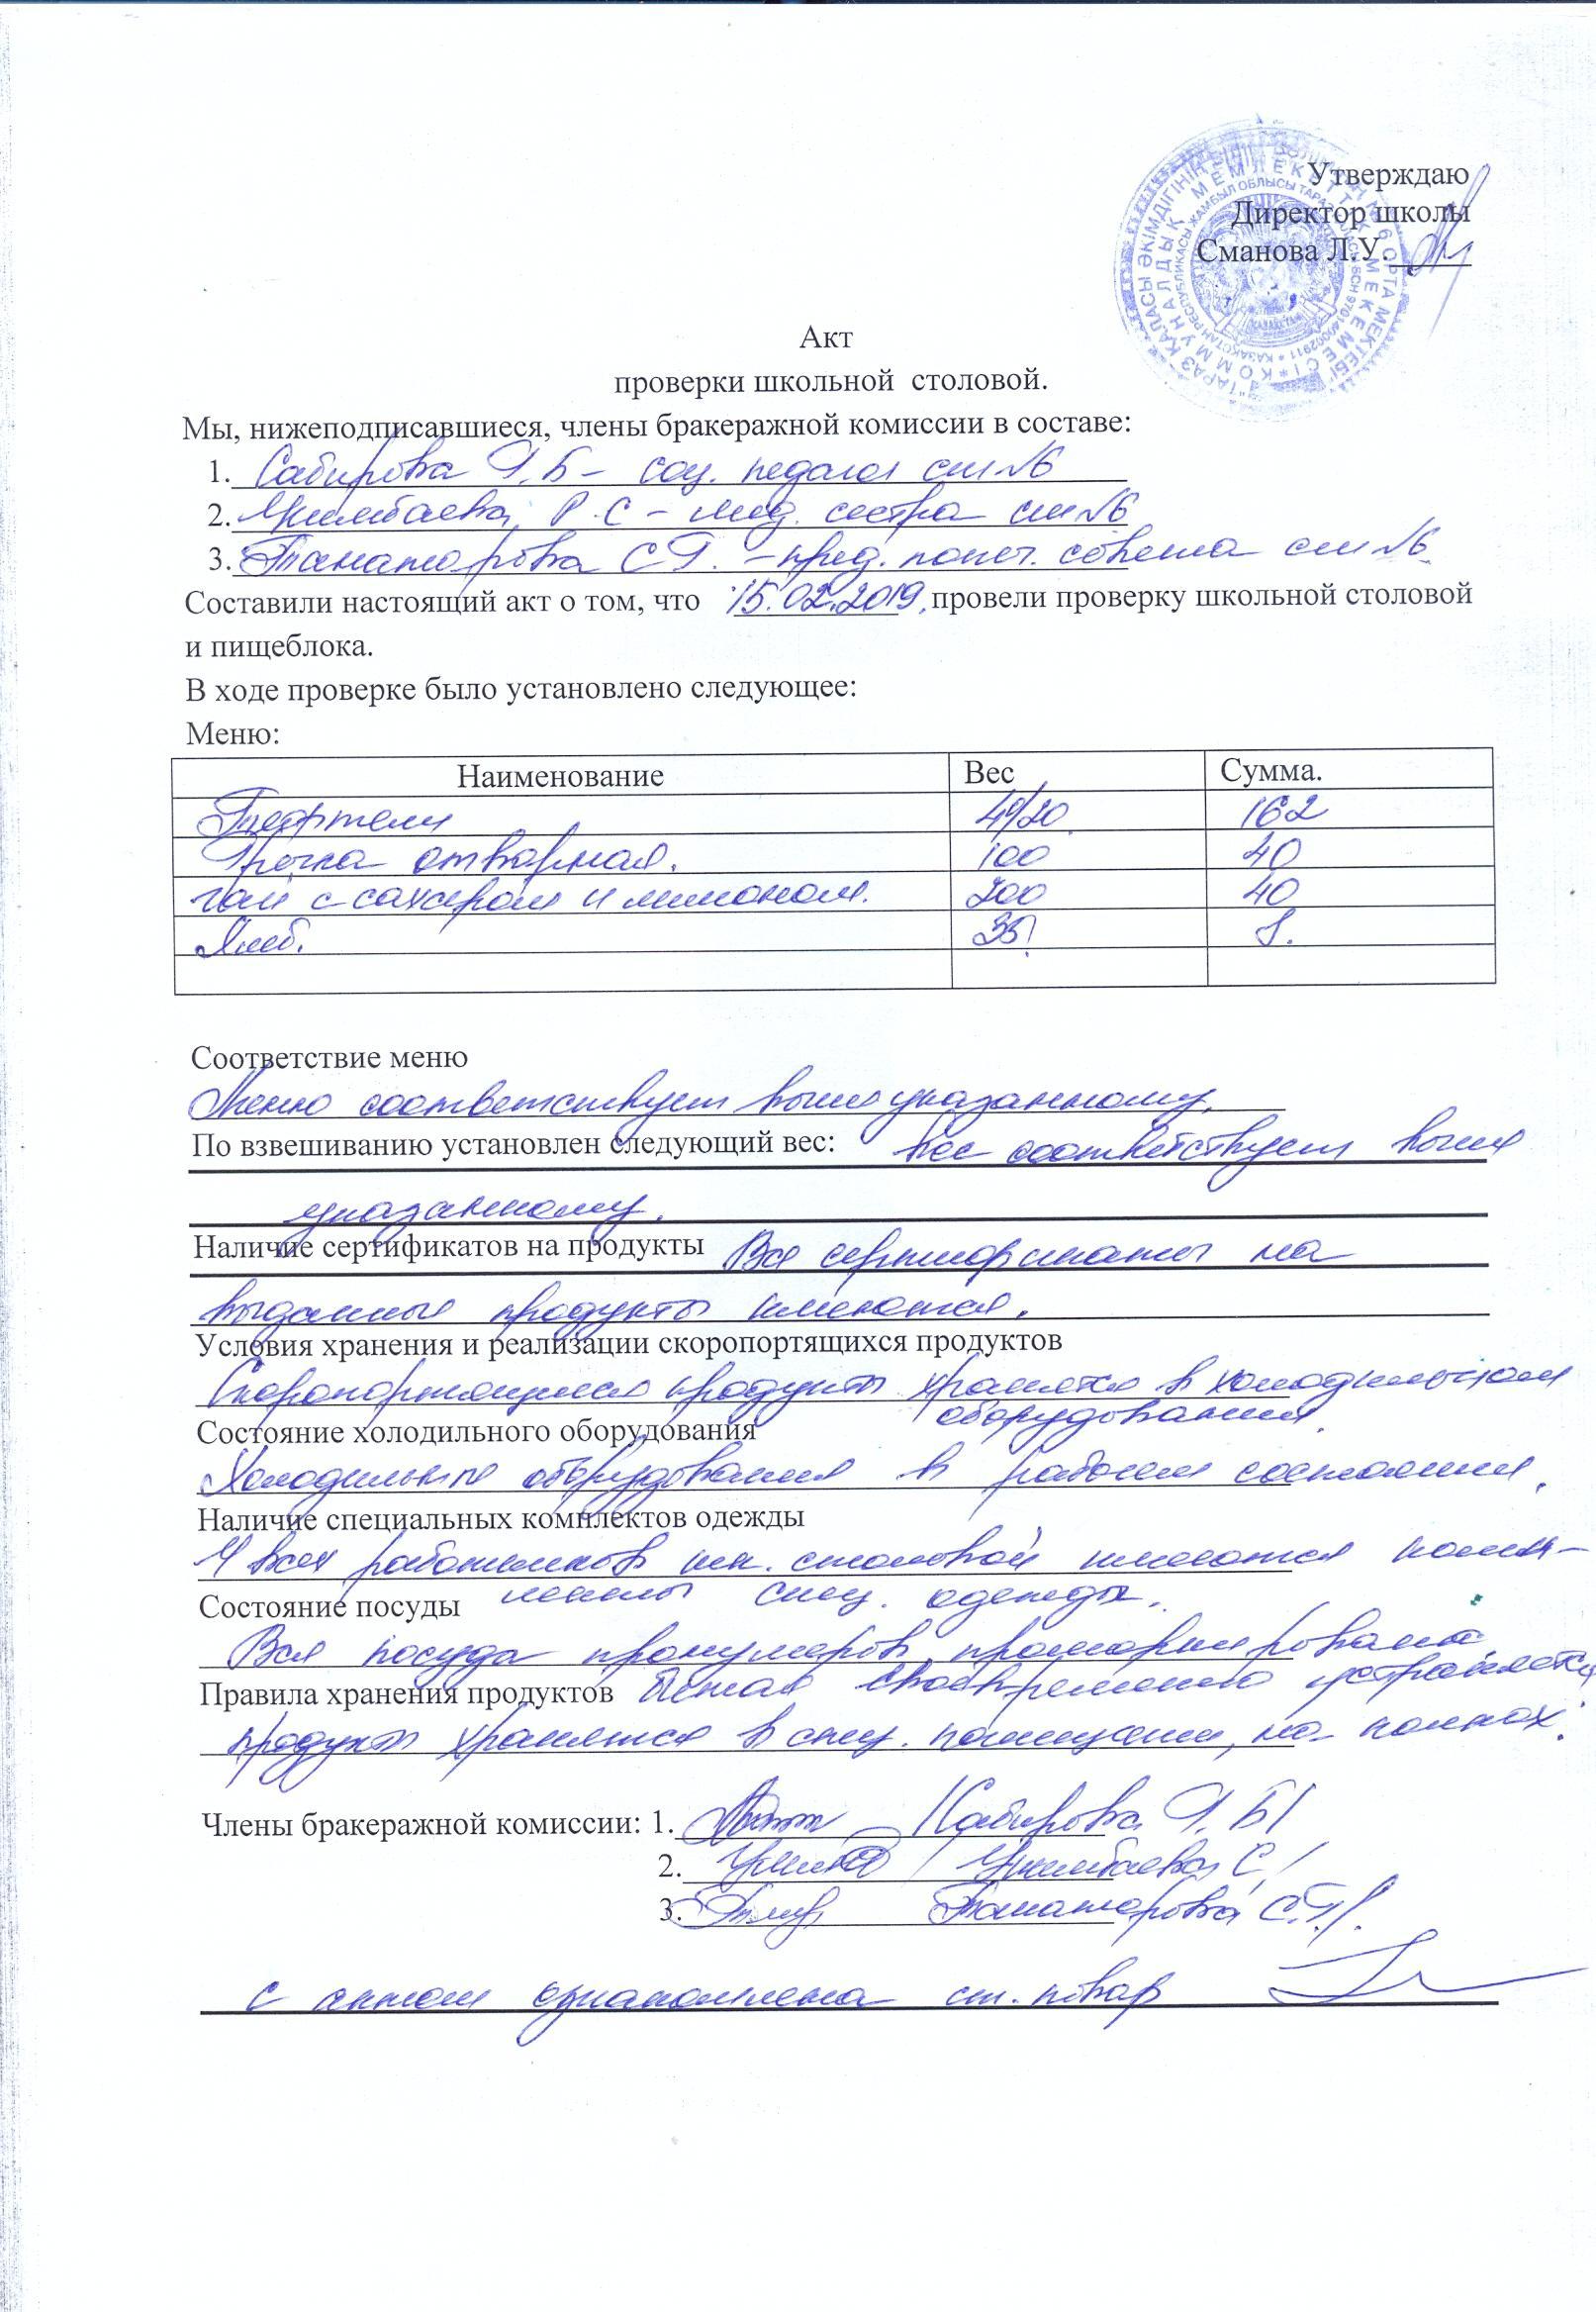 Утверждаю
Директор школы
Сманова Л.У.
Акт
проверки школьной столовой.
Мы, нижеподписавшиеся, члены бракеражной комиссии в составе:
1. Сабирова Г.Б - соц. педагог сш №6
2. Укимбаева Р.С - мед. сестра сш №6
3. Танаторова С.Г. - пред. попеч. совета сш №6
Составили настоящий акт о том, что 15.02.2019, провели проверку школьной столовой
и пищеблока.
В ходе проверке было установлено следующее:
Меню:
Наименование Вес Сумма.
Тефтели 162
Гречка отварная. 100 40
чай с сахаром и лимоном. 200 40
Хлеб. 35 8.
Соответствие меню
Меню соответствует вышеуказанному.
По взвешиванию установлен следующий вес: вес соответствует выше
указанному.
Наличие сертификатов на продукты Все сертификаты на
выданные продукты имеются.
Условия хранения и реализации скоропортящихся продуктов
Скоропортящиеся продукты хранятся в холодильном
оборудовании.
Состояние холодильного оборудования
Холодильные оборудования в рабочем состоянии.
Наличие специальных комплектов одежды
У всех работников шк. столовой имеются комп-
лекты спец. одежды.
Состояние посуды
Вся посуда пронумеров, промаркирована.
Правила хранения продуктов своевременно устраняется
продукты хранятся в спец. помещении, на полках.
Члены бракеражной комиссии: 1. /Сабирова Г.Б/
2. /Укимбаева С/
3. Танаторова С.Г/.
С актом ознакомлена ст. повар